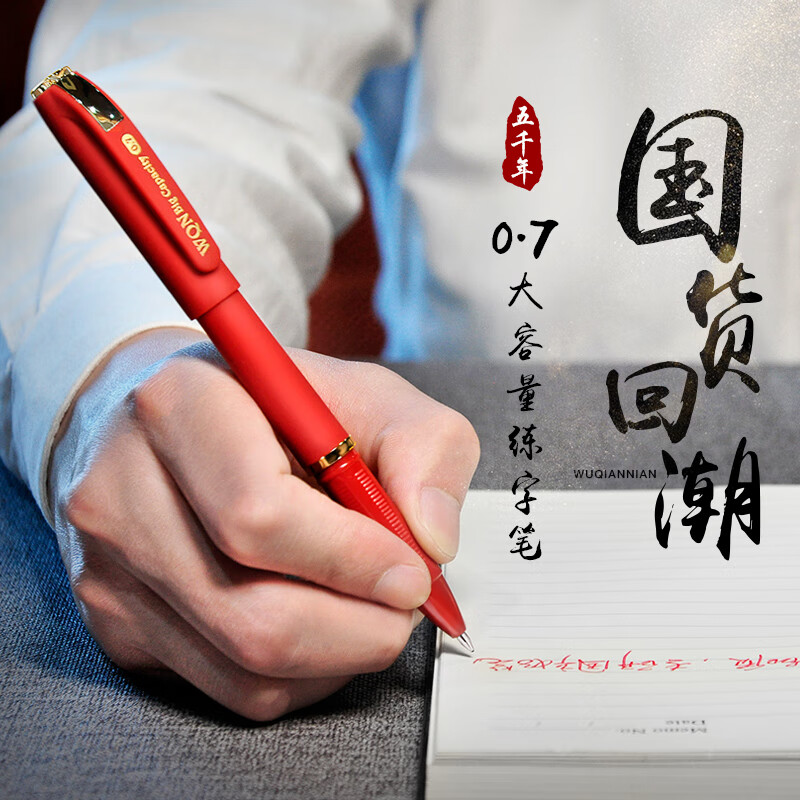 国货回潮
五千年
0.7大容量练字笔
WUQIANNIAN
WQN Big Capacity 0.7
Memo No.
Date